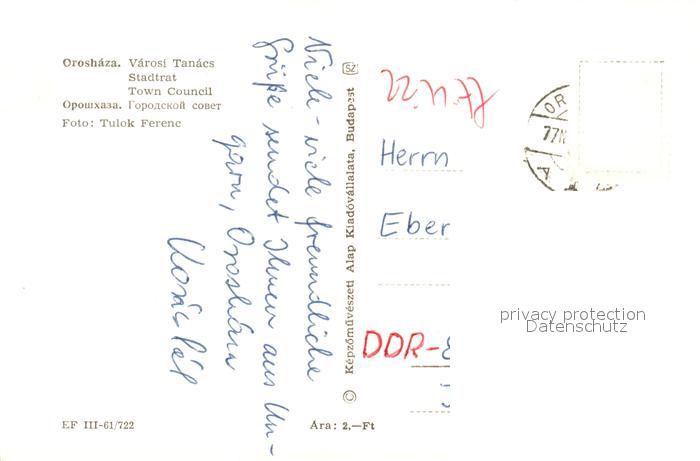 Orosháza. Városi Tanács
Stadtrat
Town Council
Орошхаза. Городской совет
Foto: Tulok Ferenc
Viele-viele freundliche
Grüße sendet Ihnen aus Un-
garn, Orosháza
Pál
EF III-61/722
Ára: 2,—Ft
Képzőművészeti Alap Kiadóvállalata, Budapest
SZ
Herrn
Eber
DDR-
OR
77
A
privacy protection
Datenschutz